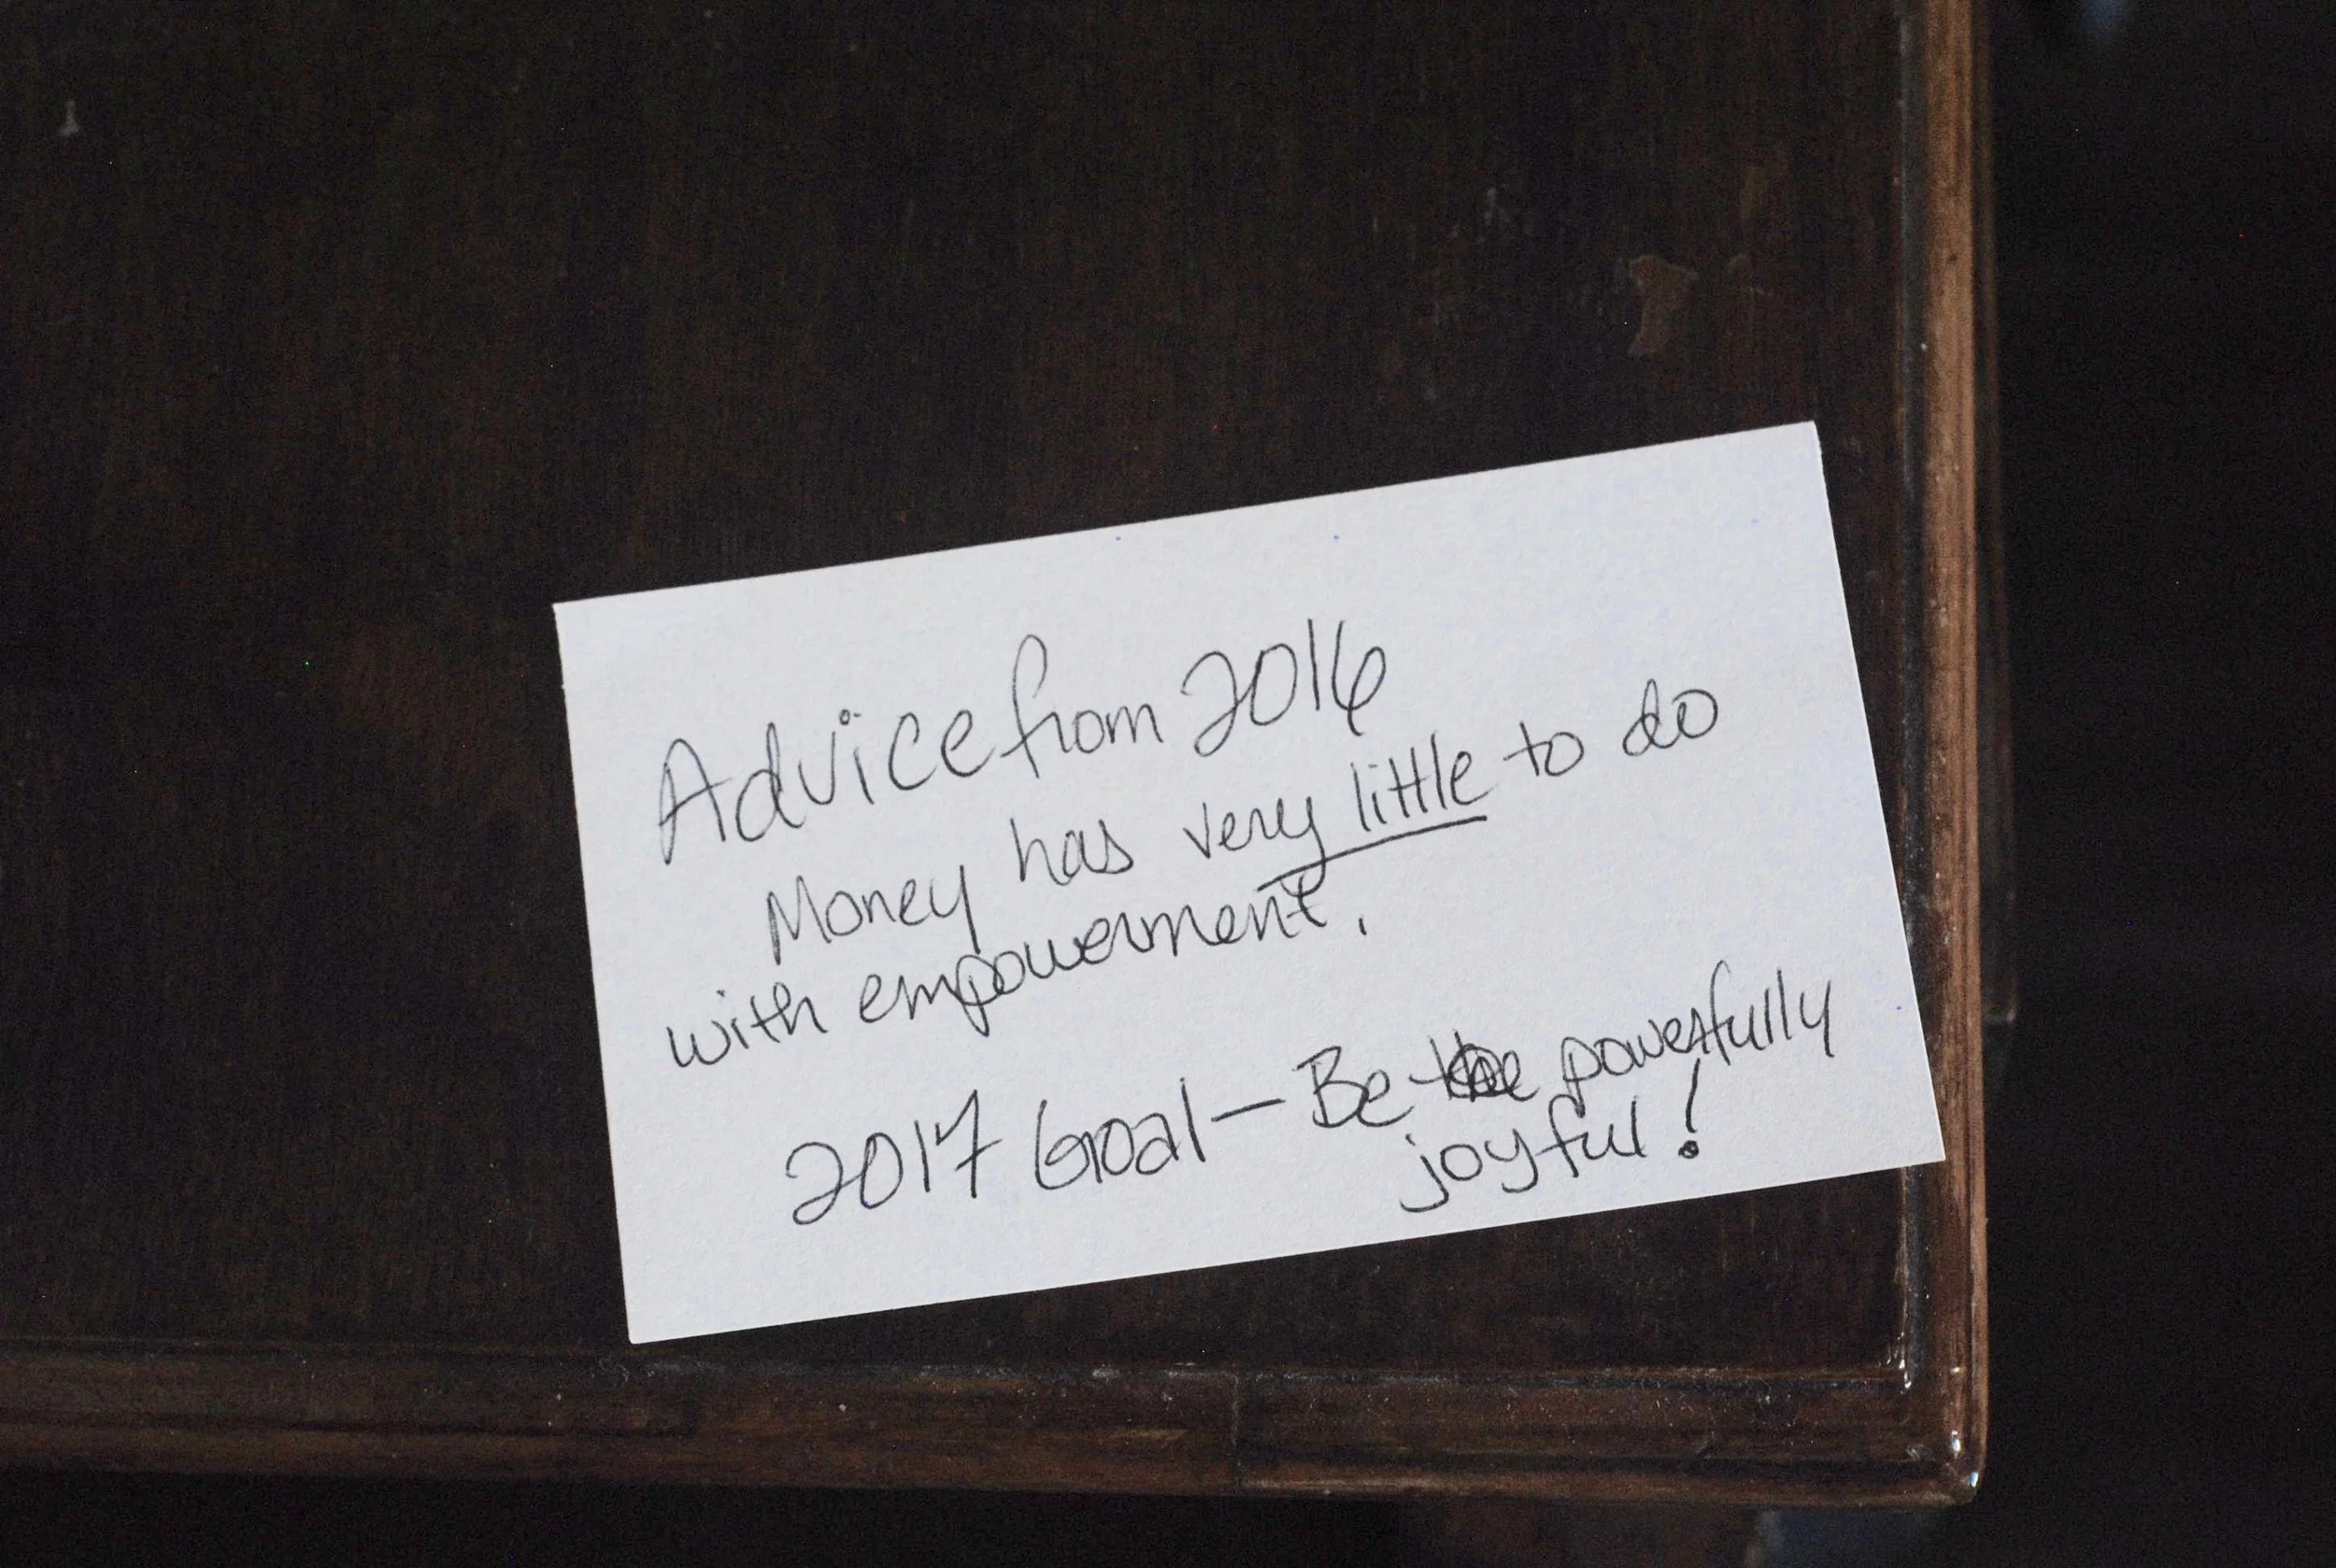 Advice from 2016
Money has very little to do
with empowerment.
2017 Goal – Be the powerfully
joyful!